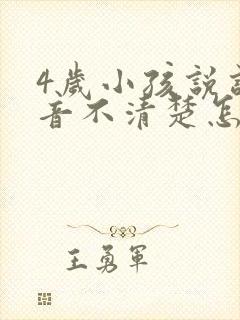 4歲小孩說
音不清楚怎
王勇軍